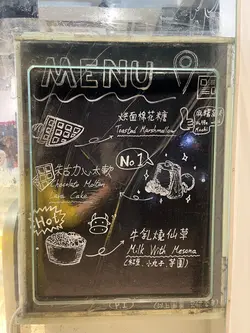 MENU
烘面棉花糖
Toasted Marshmallow
Waffle
Mochi
朱古力心太軟
Chocolate Molten
Lava Cake
No.1
Hot
牛乳燒仙草
Milk With Mesona
(紅豆, 小丸子, 芋圓)